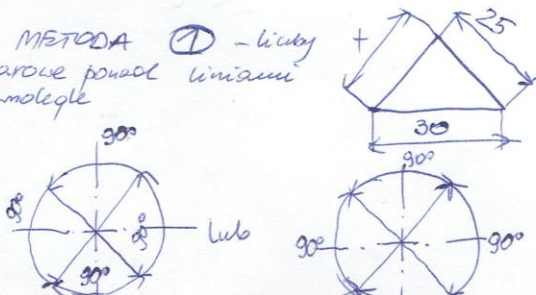 METODA 1 - liczby
arowe ponad liniami
molegle
+
25
30
90°
90°
90°
90°
lub
90°
90°
90°